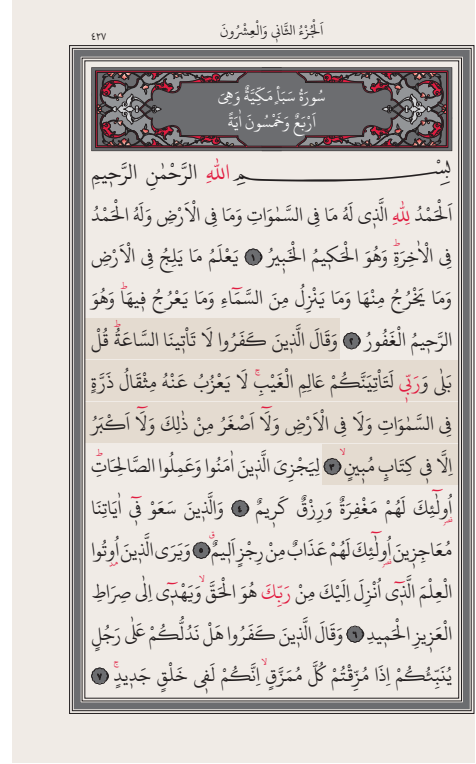 اَلْجُزْءُ الثَّانٖي وَالْعِشْرُونَ
٤٢٧
سُورَةُ سَبَأٍ مَكِّيَّةٌ وَهِيَ
اَرْبَعٌ وَخَمْسُونَ اٰيَةً
بِسْمِ اللّٰهِ الرَّحْمٰنِ الرَّحٖيمِ
اَلْحَمْدُ لِلّٰهِ الَّذٖى لَهُ مَا فِى السَّمٰوَاتِ وَمَا فِى الْاَرْضِ وَلَهُ الْحَمْدُ
فِى الْاٰخِرَةِؕ وَهُوَ الْحَكٖيمُ الْخَبٖيرُ ﴿١﴾ يَعْلَمُ مَا يَلِجُ فِى الْاَرْضِ
وَمَا يَخْرُجُ مِنْهَا وَمَا يَنْزِلُ مِنَ السَّمَٓاءِ وَمَا يَعْرُجُ فٖيهَاؕ وَهُوَ
الرَّحٖيمُ الْغَفُورُ ﴿٢﴾ وَقَالَ الَّذٖينَ كَفَرُوا لَا تَأْتٖينَا السَّاعَةُؕ قُلْ
بَلٰى وَرَبّٖى لَتَأْتِيَنَّكُمْ عَالِمِ الْغَيْبِۚ لَا يَعْزُبُ عَنْهُ مِثْقَالُ ذَرَّةٍ
فِى السَّمٰوَاتِ وَلَا فِى الْاَرْضِ وَلَٓا اَصْغَرُ مِنْ ذٰلِكَ وَلَٓا اَكْبَرُ
اِلَّا فٖى كِتَابٍ مُبٖينٍۙ ﴿٣﴾ لِيَجْزِىَ الَّذٖينَ اٰمَنُوا وَعَمِلُوا الصَّالِحَاتِؕ
اُو۬لٰٓئِكَ لَهُمْ مَغْفِرَةٌ وَرِزْقٌ كَرٖيمٌ ﴿٤﴾ وَالَّذٖينَ سَعَوْ فٖٓى اٰيَاتِنَا
مُعَاجِزٖينَ اُو۬لٰٓئِكَ لَهُمْ عَذَابٌ مِنْ رِجْزٍ اَلٖيمٌ ﴿٥﴾ وَيَرَى الَّذٖينَ اُو۫تُوا
الْعِلْمَ الَّذٖٓى اُنْزِلَ اِلَيْكَ مِنْ رَبِّكَ هُوَ الْحَقَّۙ وَيَهْدٖٓى اِلٰى صِرَاطِ
الْعَزٖيزِ الْحَمٖيدِ ﴿٦﴾ وَقَالَ الَّذٖينَ كَفَرُوا هَلْ نَدُلُّكُمْ عَلٰى رَجُلٍ
يُنَبِّئُكُمْ اِذَا مُزِّقْتُمْ كُلَّ مُمَزَّقٍۙ اِنَّكُمْ لَفٖى خَلْقٍ جَدٖيدٍۚ ﴿٧﴾